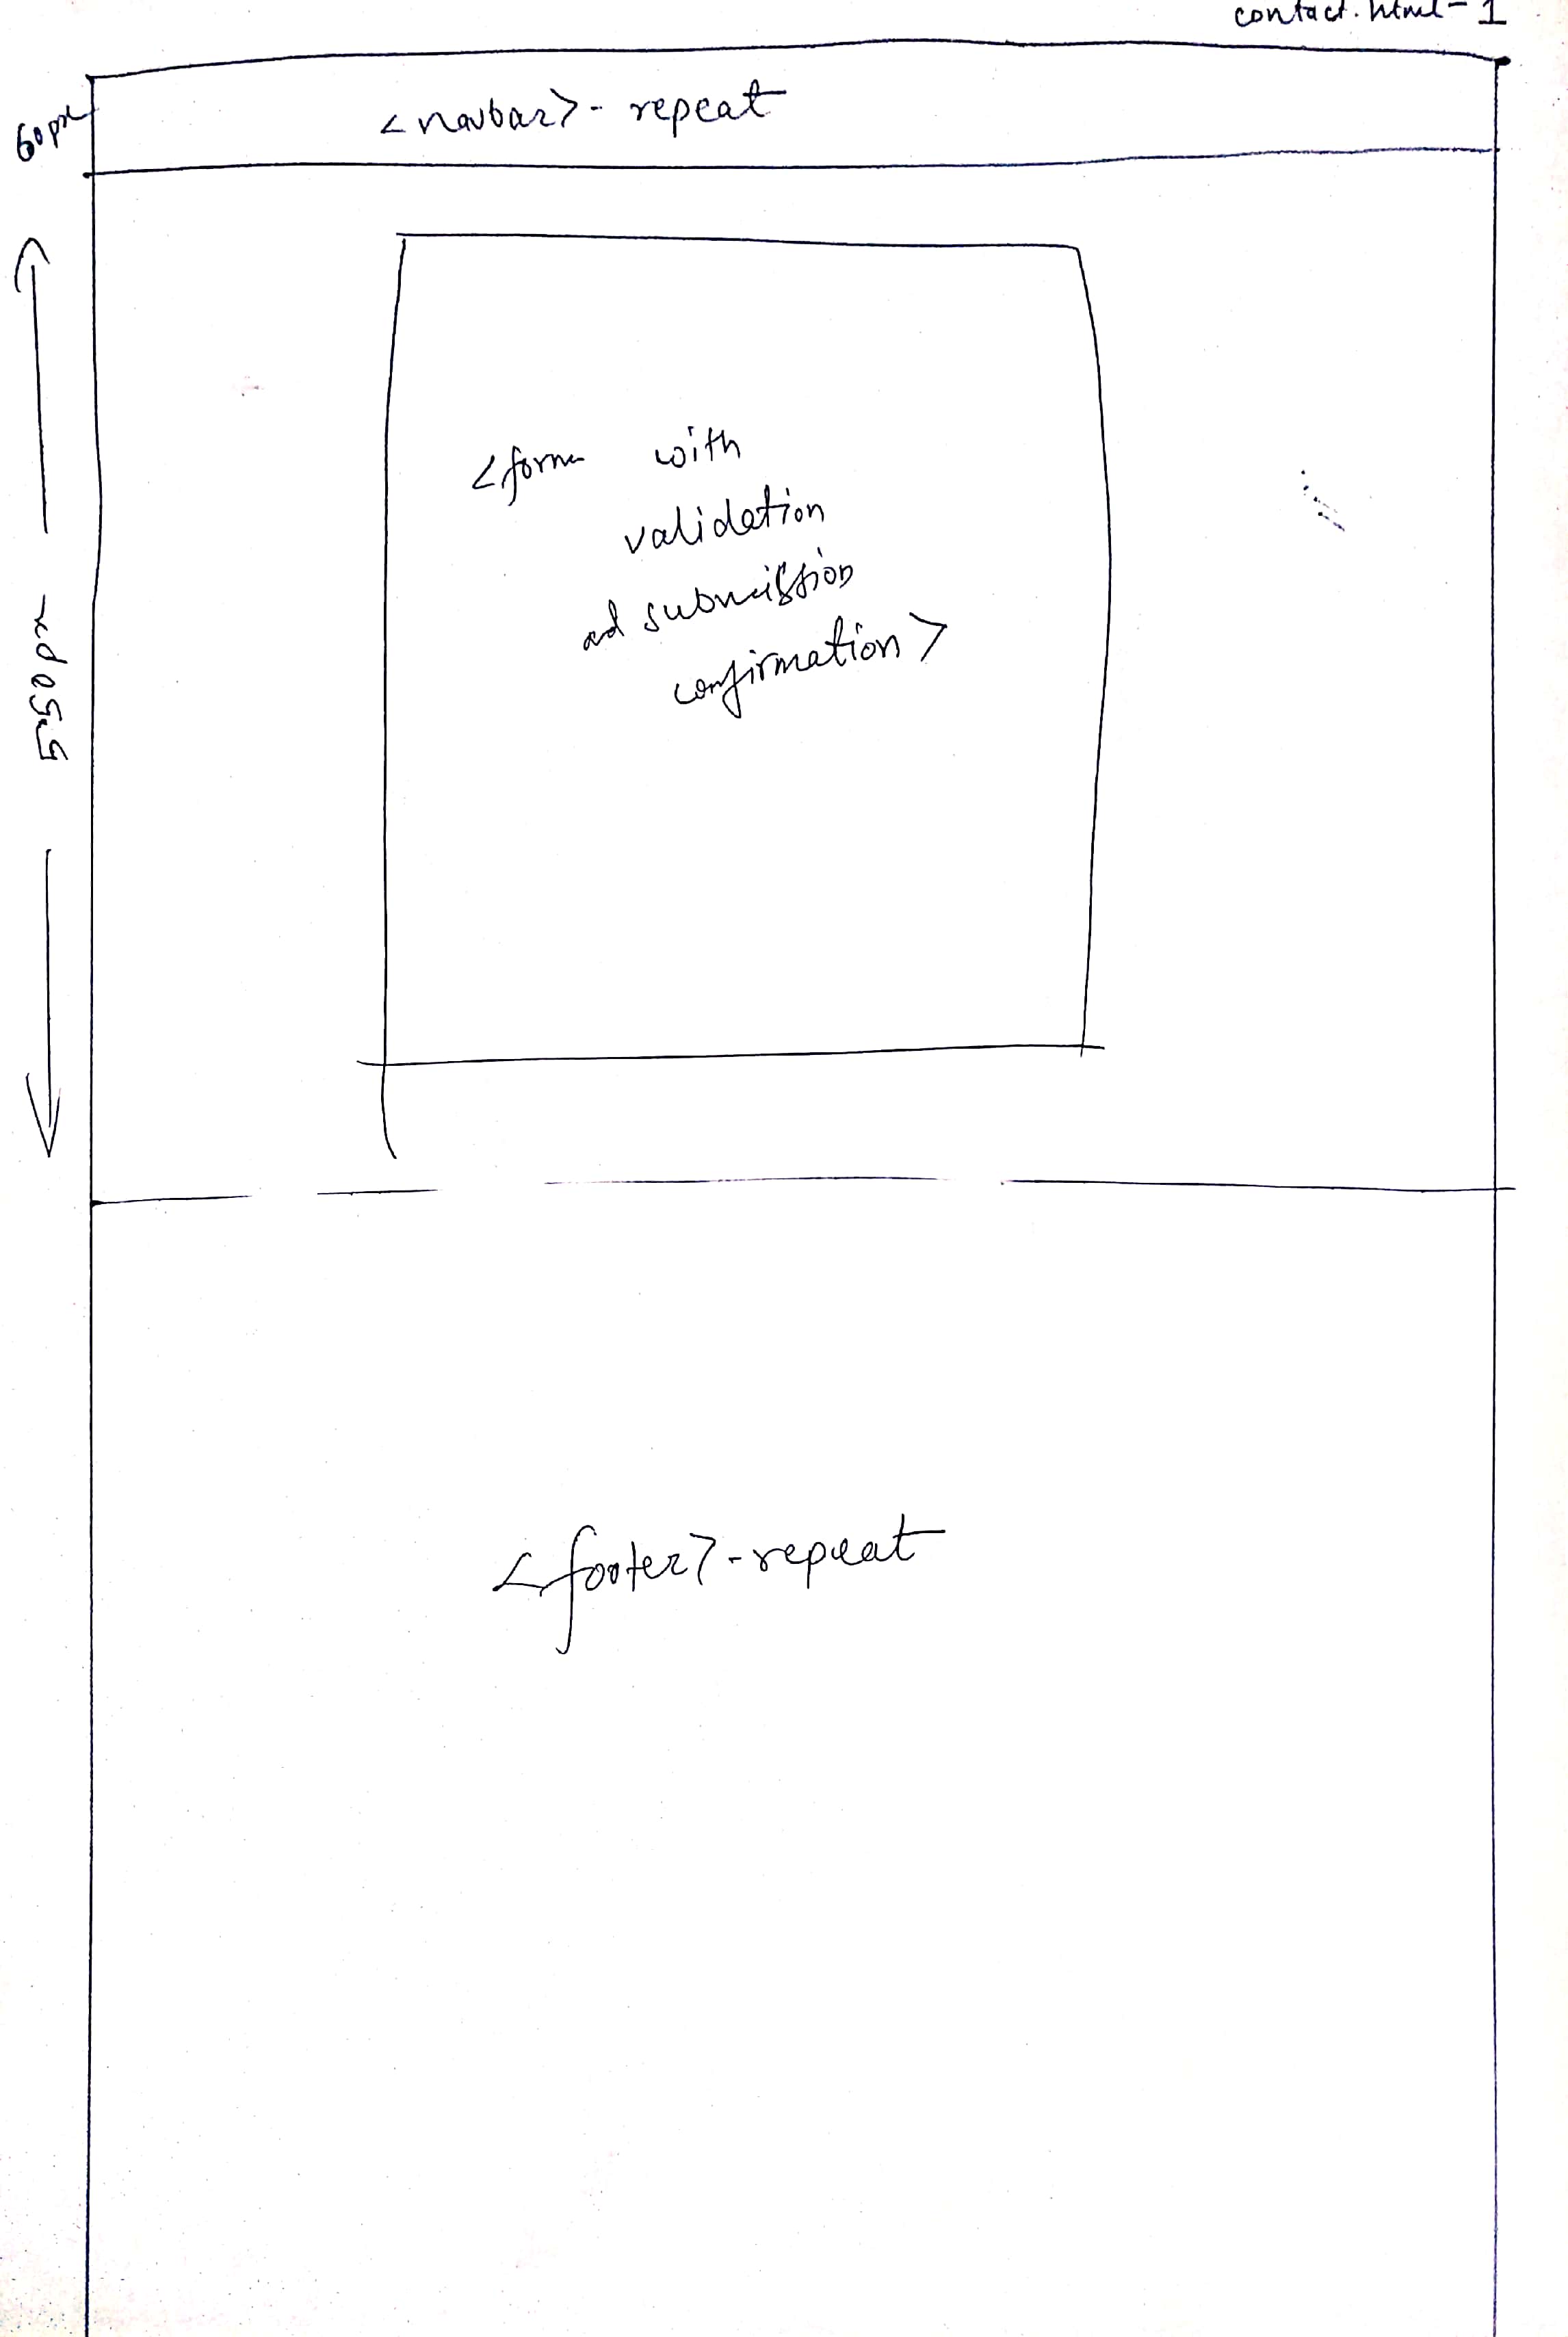 contact.html-1
60px
<navbar>- repeat
<form with
validation
ad submission
confirmation>
550px
<footer>-repeat